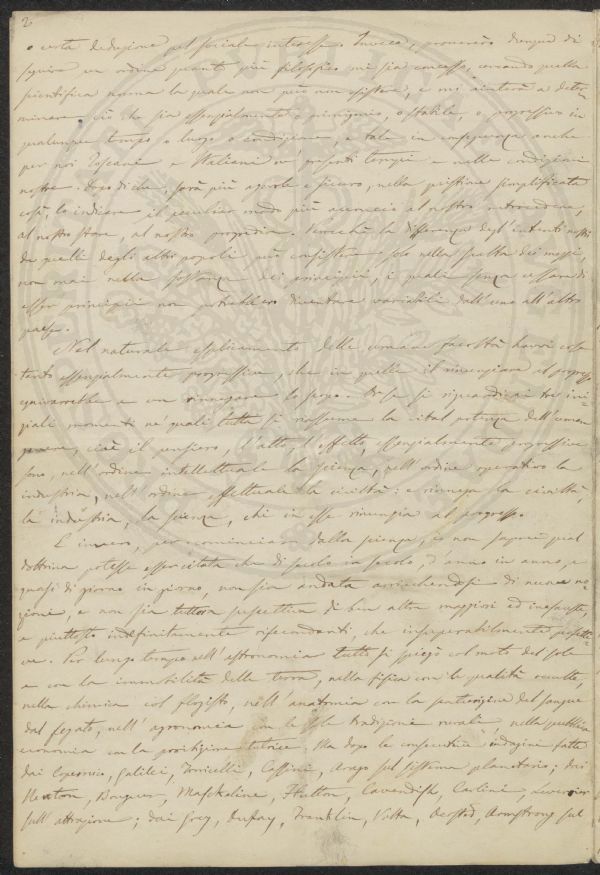 2
o certa deduzione pel sociale interesse. Invece, procurerò dunque di
seguire un ordine quanto più filosofico mi sia concesso, cercando quella
scientifica norma la quale non può non esistere, e mi aiuterà a deter-
minare ciò che sia essenzialmente o primigenio, o stabile, o progressivo in
qualunque tempo o luogo o condizione, e tale in conseguenza anche
per noi Toscani e Italiani ne' presenti tempi e nelle condizioni
nostre. Dopo di che, sarà più agevole e sicuro, nella quistione simplificata
così, lo indicare il peculiar modo più acconcio al nostro retrocedere,
al nostro stare, al nostro progredire. Perocché la differenza degl'intenti nostri
da quelli degli altri popoli può consistere solo nella scelta dei mezzi,
non mai nella sostanza dei principii, i quali senza cessare di
esser principii non potrebbero diventare variabili dall'uno all'altro
paese.
Nel naturale esplicamento delle umane facoltà havvi cose
tanto essenzialmente progressive, che in quelle il rinunziare al progresso
equivarrebbe a un rinnegare lo scopo. O se si riguardi ai tre ini-
ziali momenti ne' quali tutta si riassume la vital potenza dell'uman
genere, cioè il pensiero, l'atto, l'affetto, essenzialmente progressive
sono, nell'ordine intellettuale la scienza, nell'ordine operativo la
industria, nell'ordine affettuale la civiltà: e rinnega la civiltà,
la industria, la scienza, chi in esse rinunzia al progresso.
E invero, per cominciare dalla scienza, io non saprei qual
dottrina potesse essere citata che di secolo in secolo, d'anno in anno, e
quasi di giorno in giorno, non sia andata arricchendosi di nuove no-
zioni, e non sia tuttora suscettiva di ben altre maggiori ed inesauste,
e piuttosto indefinitamente rifecondanti, che insuperabilmente perfetti-
ve. Per lungo tempo nell'astronomia tutto si spiegò col moto del sole
e con la immobilità della terra, nella fisica con le qualità occulte,
nella chimica col flogisto, nell'anatomia con la del sangue
dal fegato, nell'agronomia con le sole tradizioni rurali, nella pubblica
economia con la protezione tutrice. Ma dopo le consecutive indagini fatte
dai Copernico, Galilei, Torricelli, Cassini, Arago sul sistema planetario; dai
Newton, Bouguer, Maskeline, Hutton, Cavendish, Carlini, Leverrier
sull'attrazione; dai Grey, Dufay, Franklin, Volta, Oersted, Armstrong sul